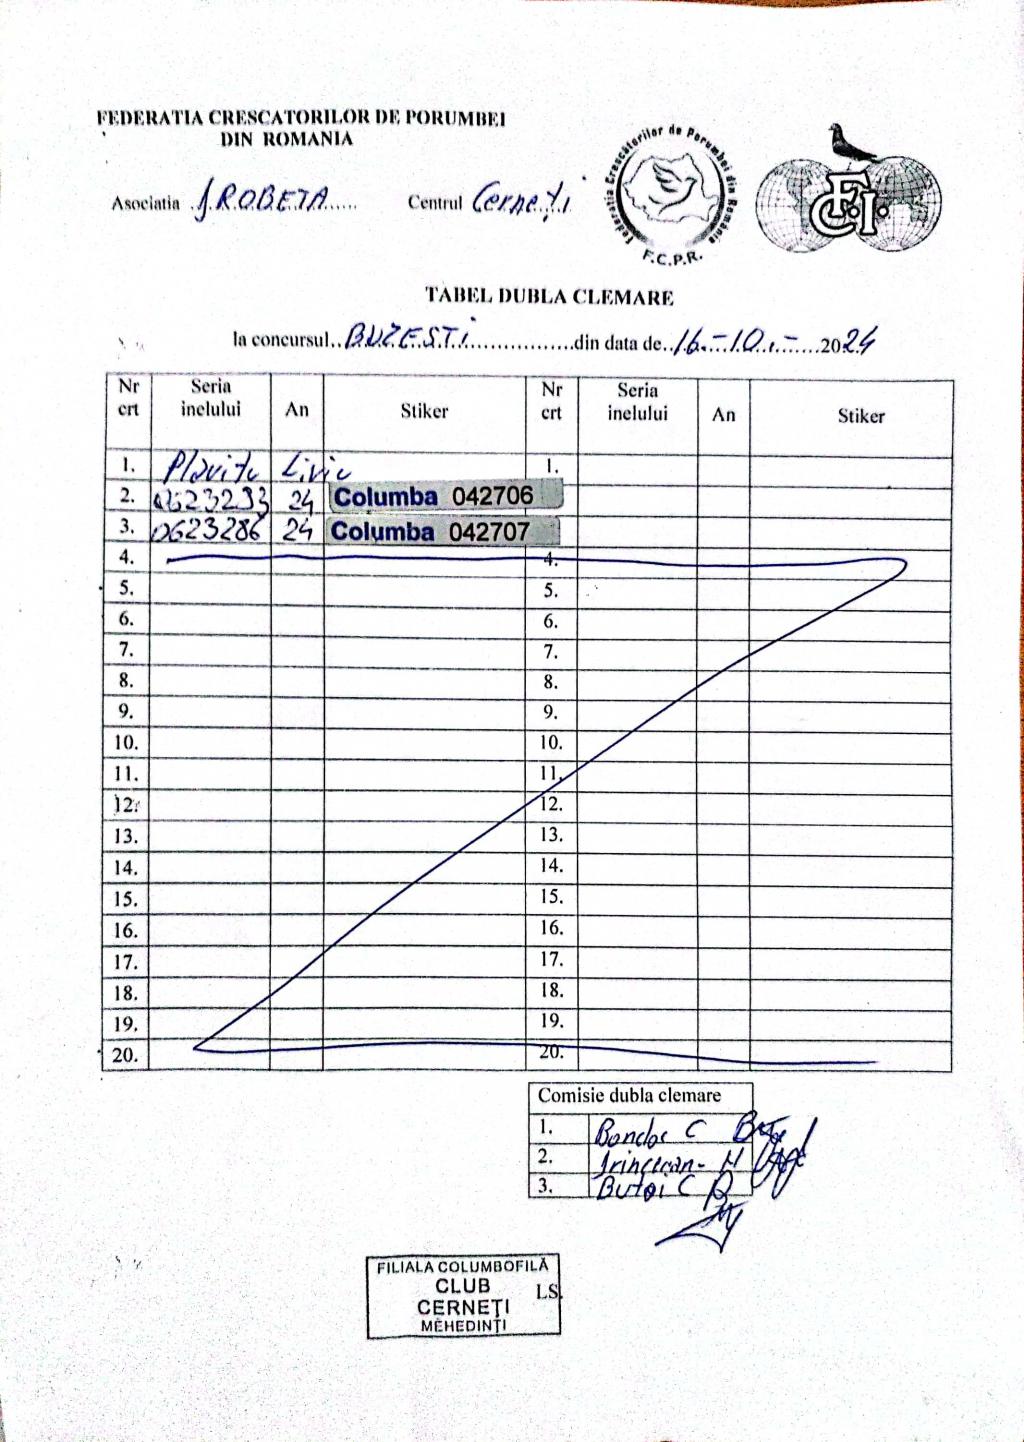 FEDERATIA CRESCATORILOR DE PORUMBEI
DIN ROMANIA
Asociatia J.ROBETA...... Centrul Cerneți
Federatia Crescătorilor de Porumbei din România
F.C.P.R.
F.C.I.
TABEL DUBLA CLEMARE
la concursul..BUZESTI..................din data de..16.-10.-......2024
Nr crt Seria inelului An Stiker Nr crt Seria inelului An Stiker
1. Plavitu Liviu 1.
2. 0623293 24 Columba 042706
3. 0623286 24 Columba 042707
4. 4.
5. 5.
6. 6.
7. 7.
8. 8.
9. 9.
10. 10.
11. 11.
12. 12.
13. 13.
14. 14.
15. 15.
16. 16.
17. 17.
18. 18.
19. 19.
20. 20.
Comisie dubla clemare
1. Bondoc C
2. H
3. Butoi C
FILIALA COLUMBOFILĂ
CLUB
CERNEȚI
MEHEDINȚI
LS.